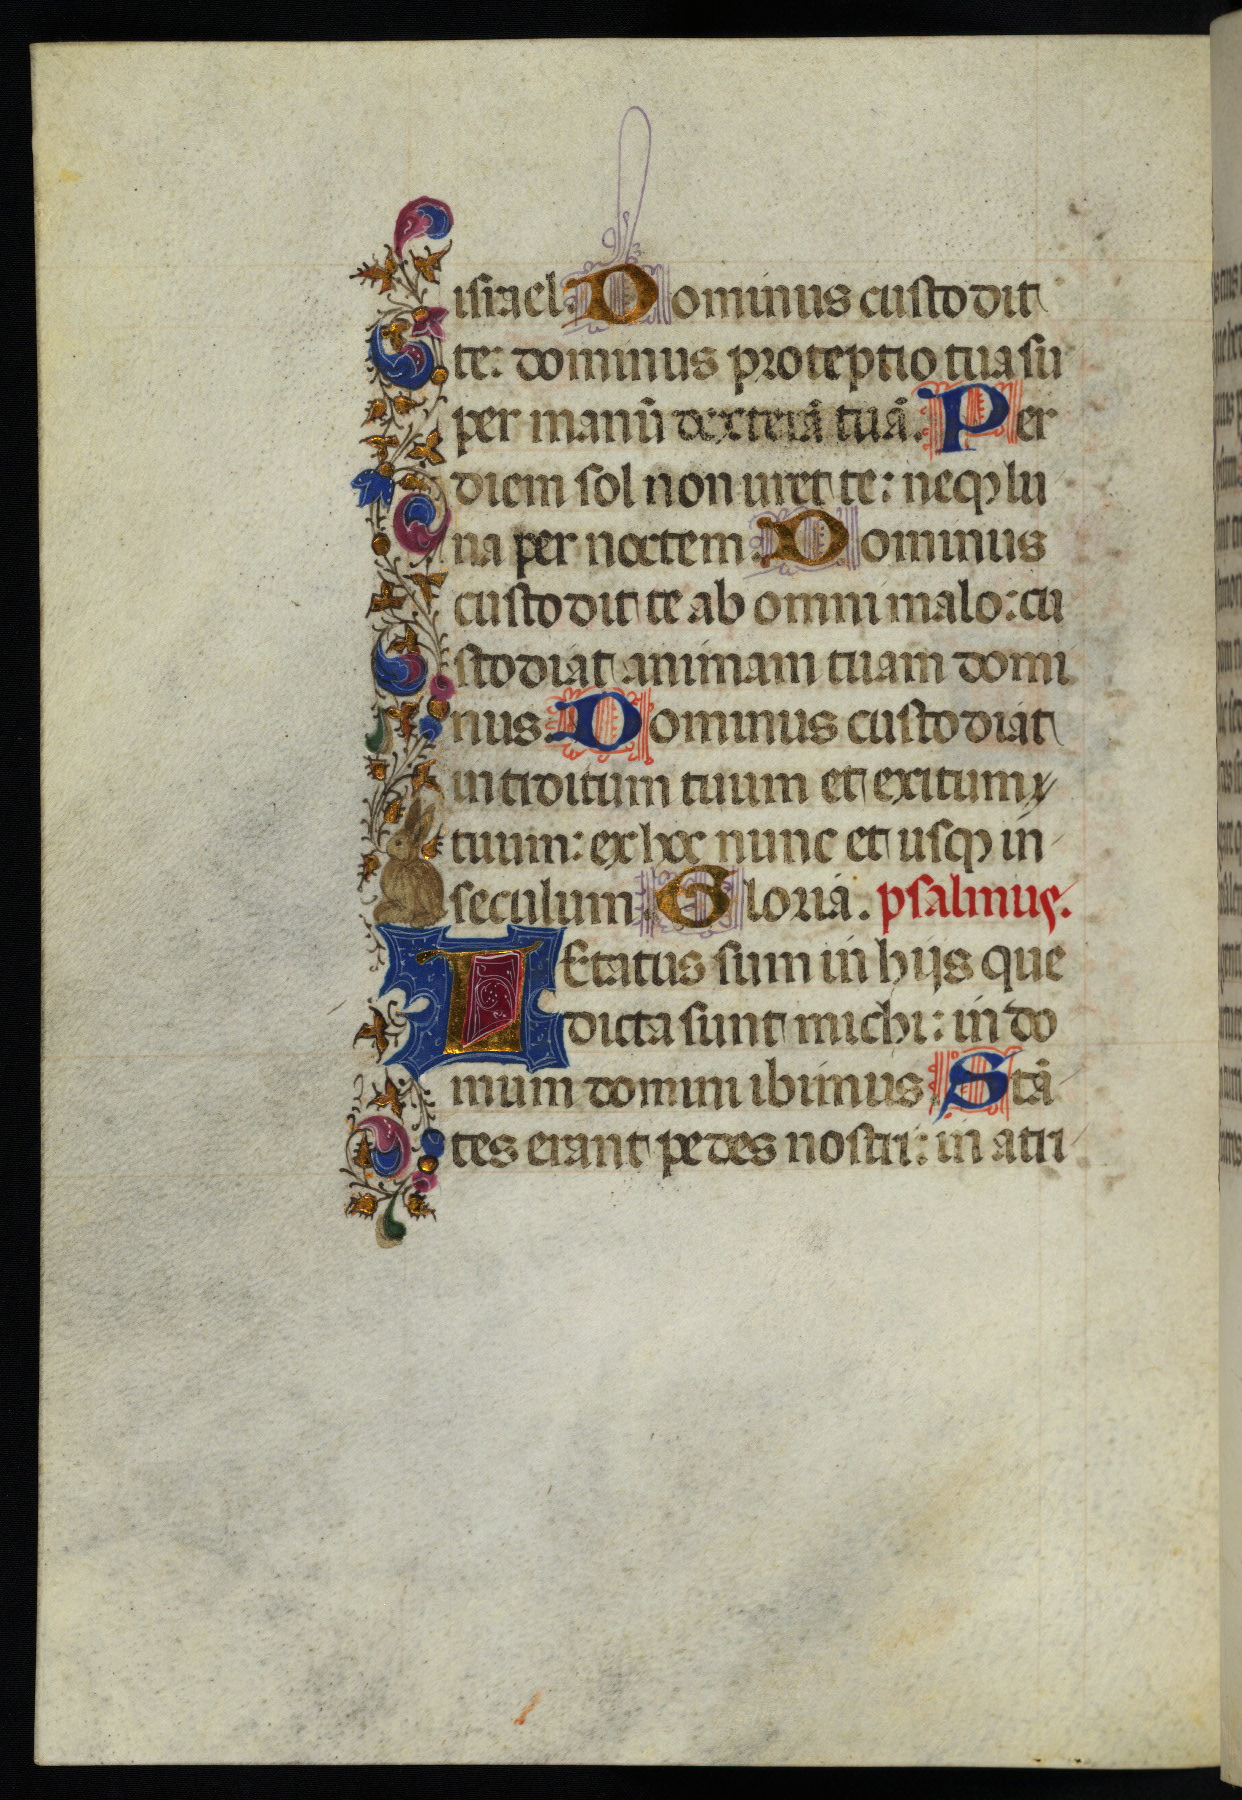 israel. Dominus custodit
te: dominus proteptio tua su
per manū dexterā tuā. Per
diem sol non uret te: neqꝫ lu
na per noctem. Dominus
custodit te ab omni malo: cu
stodiat animam tuam domi
nus. Dominus custodiat
introitum tuum et exitum
tuum: ex hoc nunc et usqꝫ in
seculum. Gloria. psalmus.
LEtatus sum in hijs que
dicta sunt michi: in do
mum domini ibimus. Stā
tes erant pedes nostri: in atri